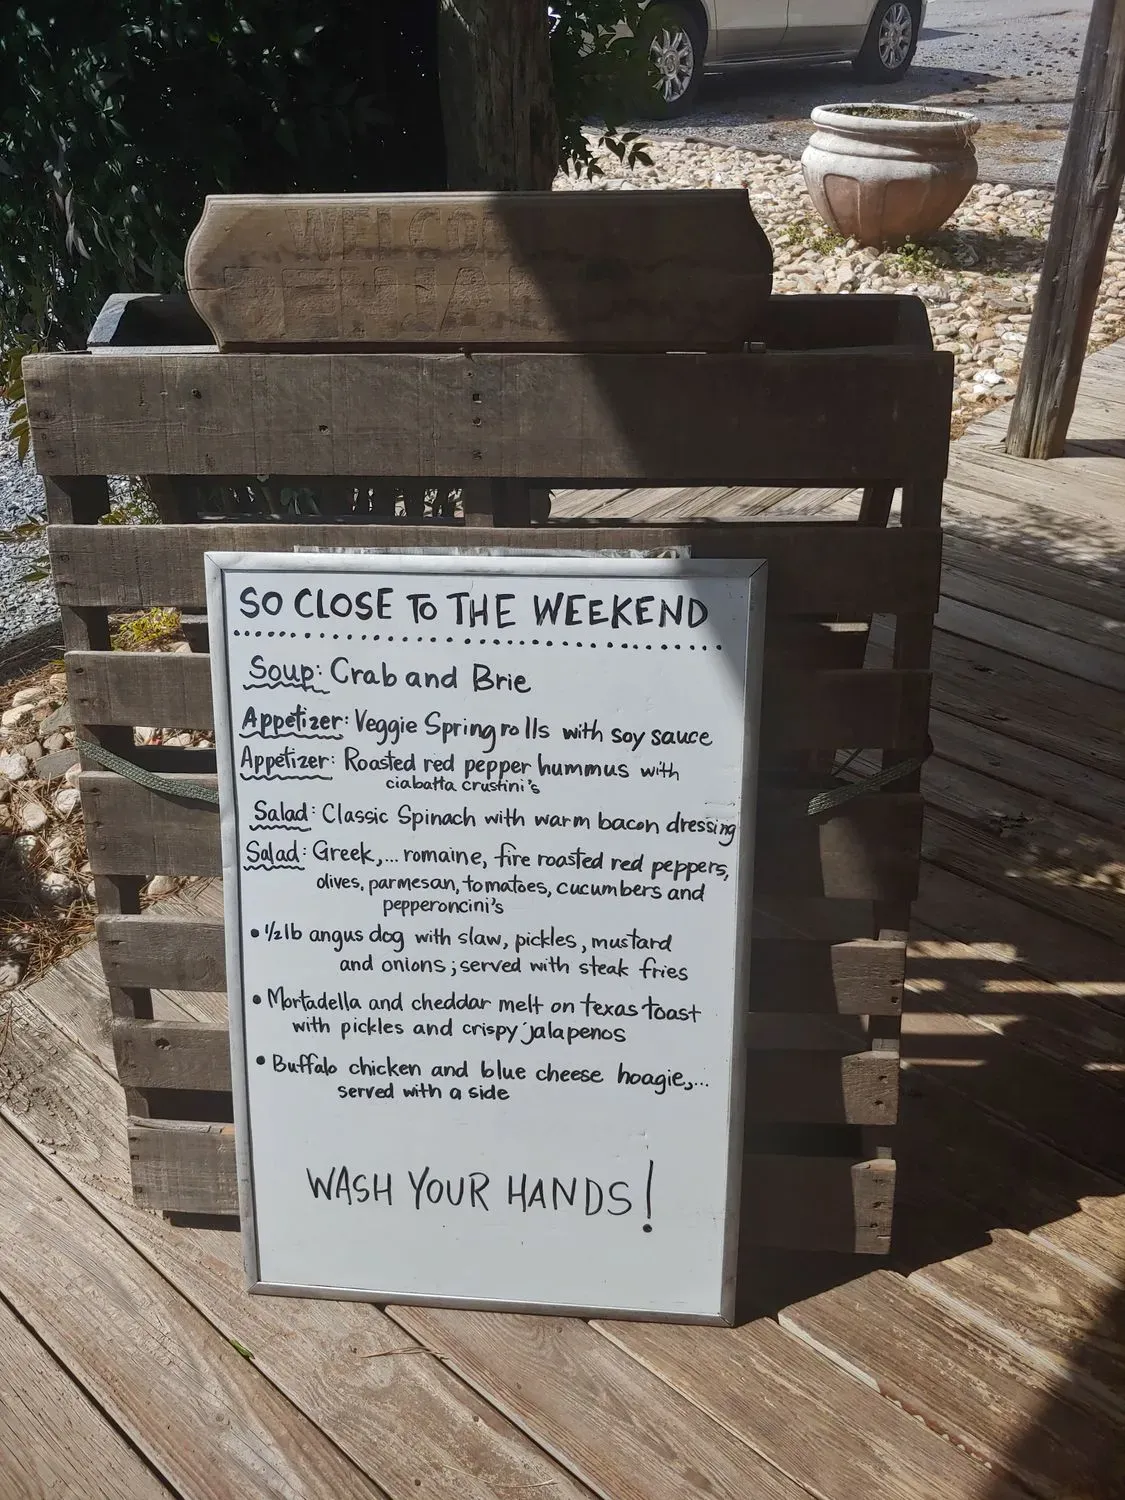 WELCO
SO CLOSE TO THE WEEKEND
Soup: Crab and Brie
Appetizer: Veggie Spring rolls with soy sauce
Appetizer: Roasted red pepper hummus with
ciabatta crustini's
Salad: Classic Spinach with warm bacon dressing
Salad: Greek,... romaine, fire roasted red peppers,
olives, parmesan, tomatoes, cucumbers and
pepperoncini's
• 1/2 lb angus dog with slaw, pickles, mustard
and onions; served with steak fries
• Mortadella and cheddar melt on texas toast
with pickles and crispy jalapenos
• Buffalo chicken and blue cheese hoagie,...
served with a side
WASH YOUR HANDS!